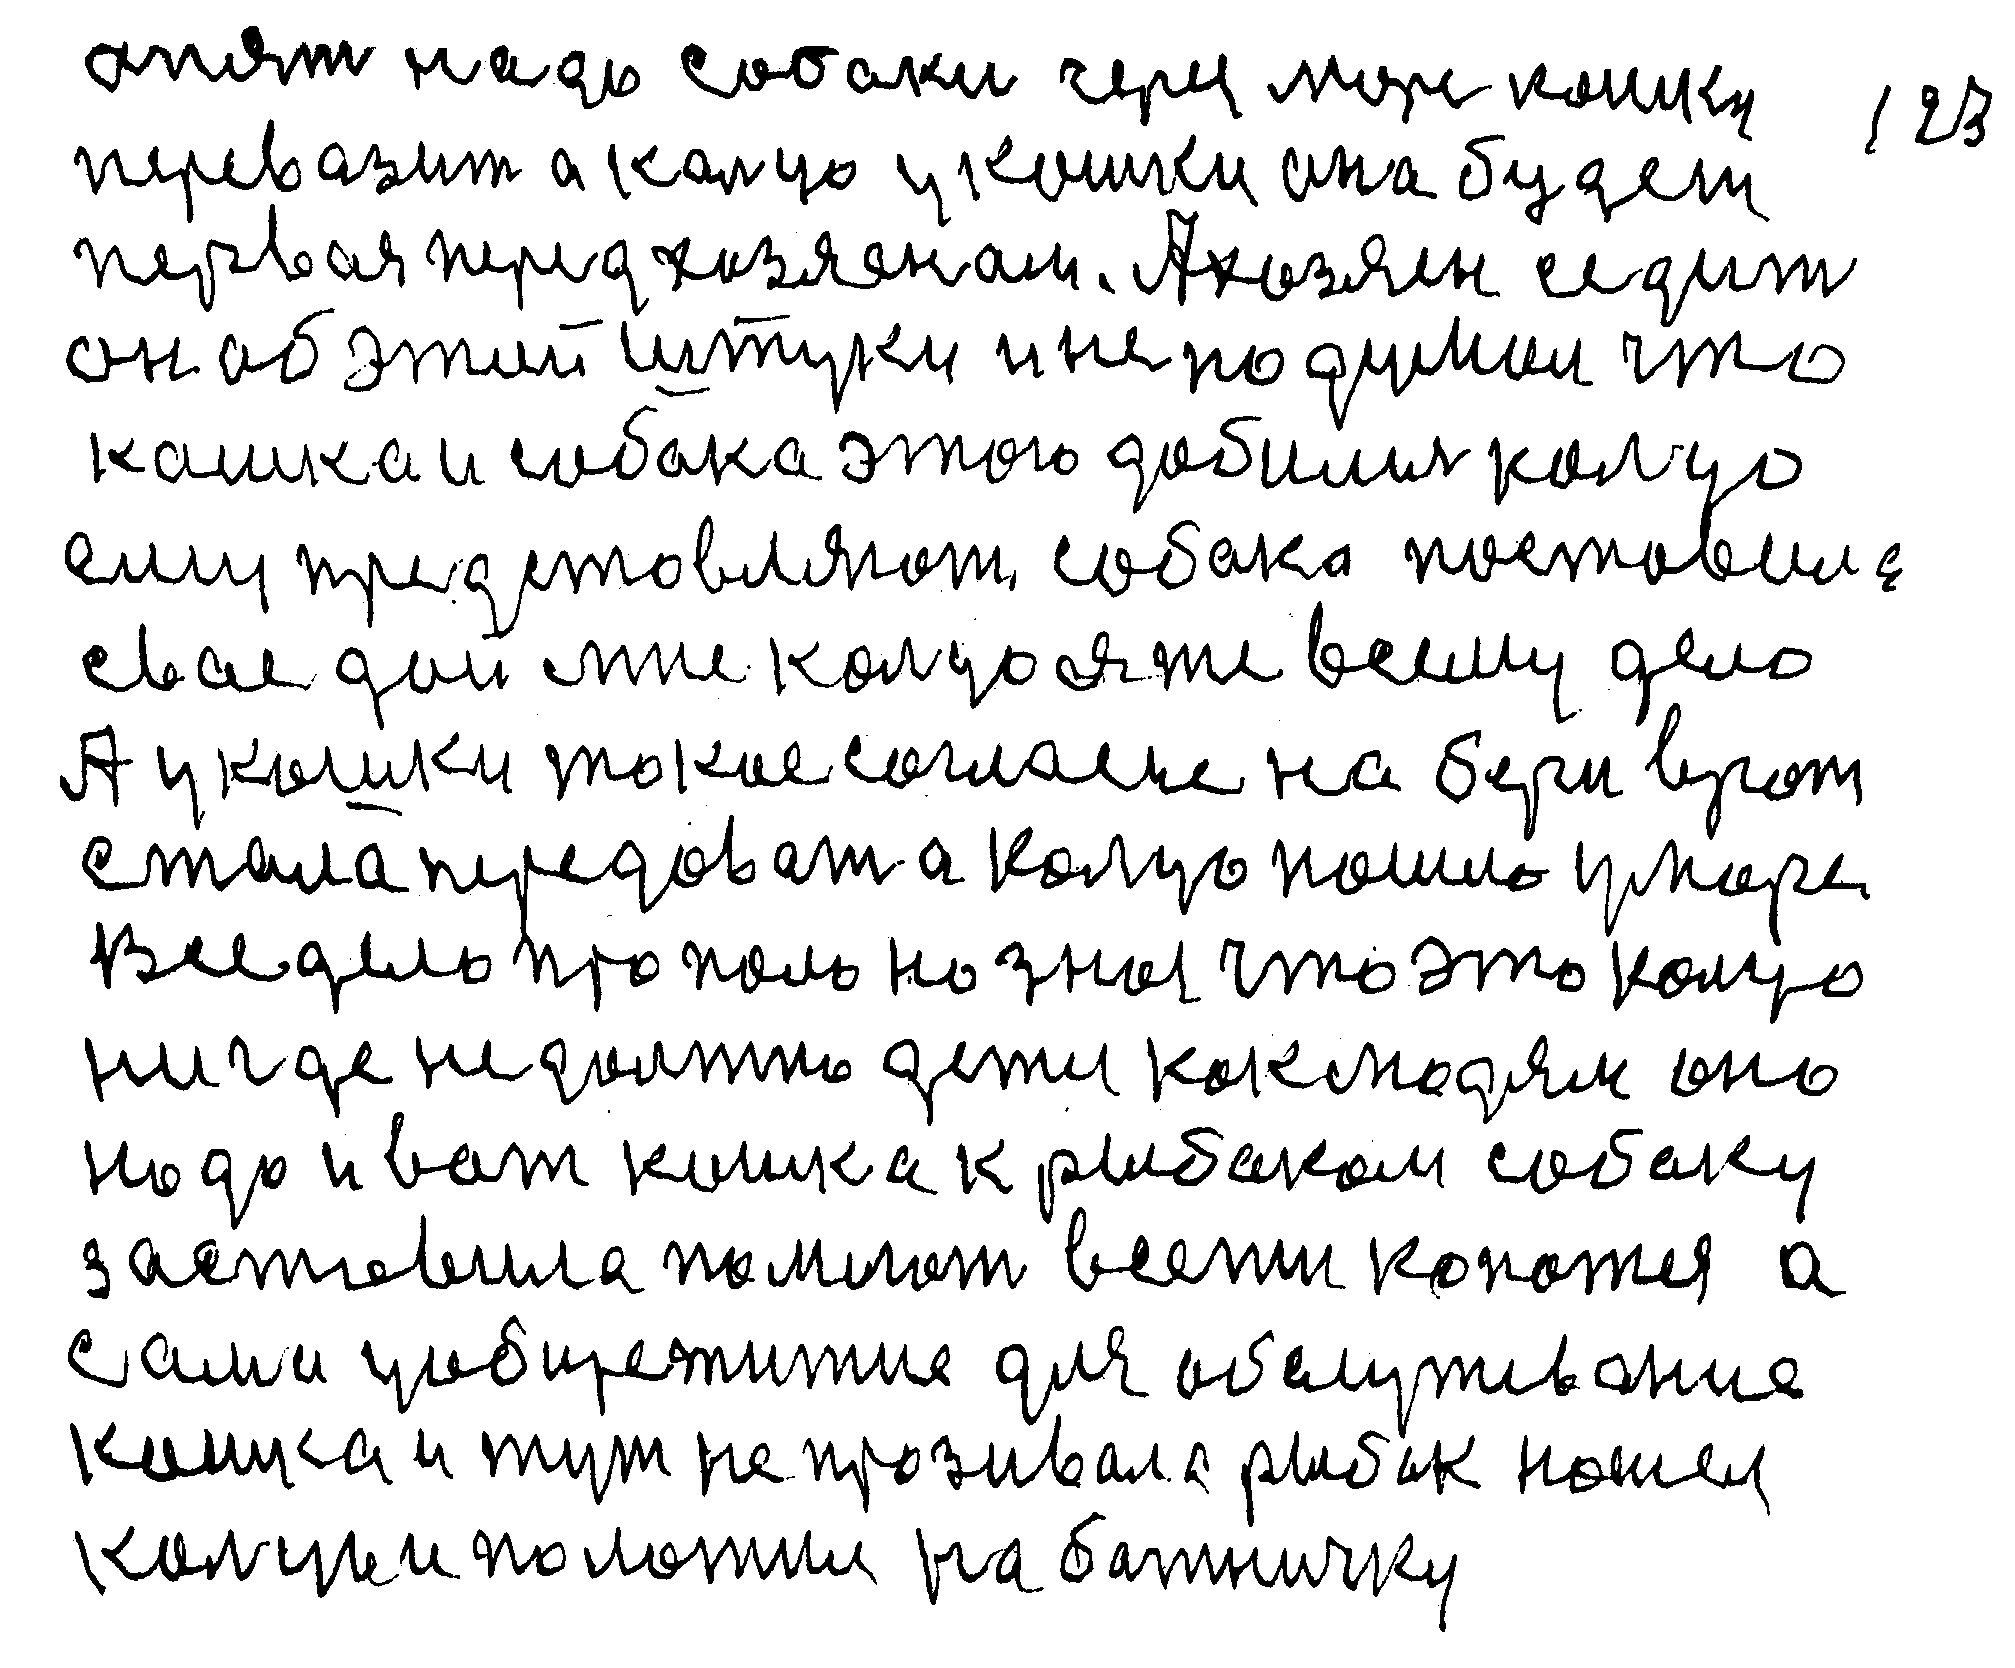 опят надо собаки через море кошку 123
перевазит а калцо у кошки она будет
первая перед хозяенам. А хозяен седит
он об этой штуки и не подумал что
кашка и собака этого добилися колцо
ему предстовляют. собака постовила
свае дай мне колцо я же всему дело
А у кошки токое согласие на бери врот
стала передоват а колцо пошло у море
Все дело пропало но знал что это колцо
нигде не должно дети как людям оно
надо и вот кошка к рыбаком собаку
застовила помогат всети копотся а
сами у общежитие для обслуживание
кошка и тут не прозивала рыбак нашел
колцо и положил на батничку